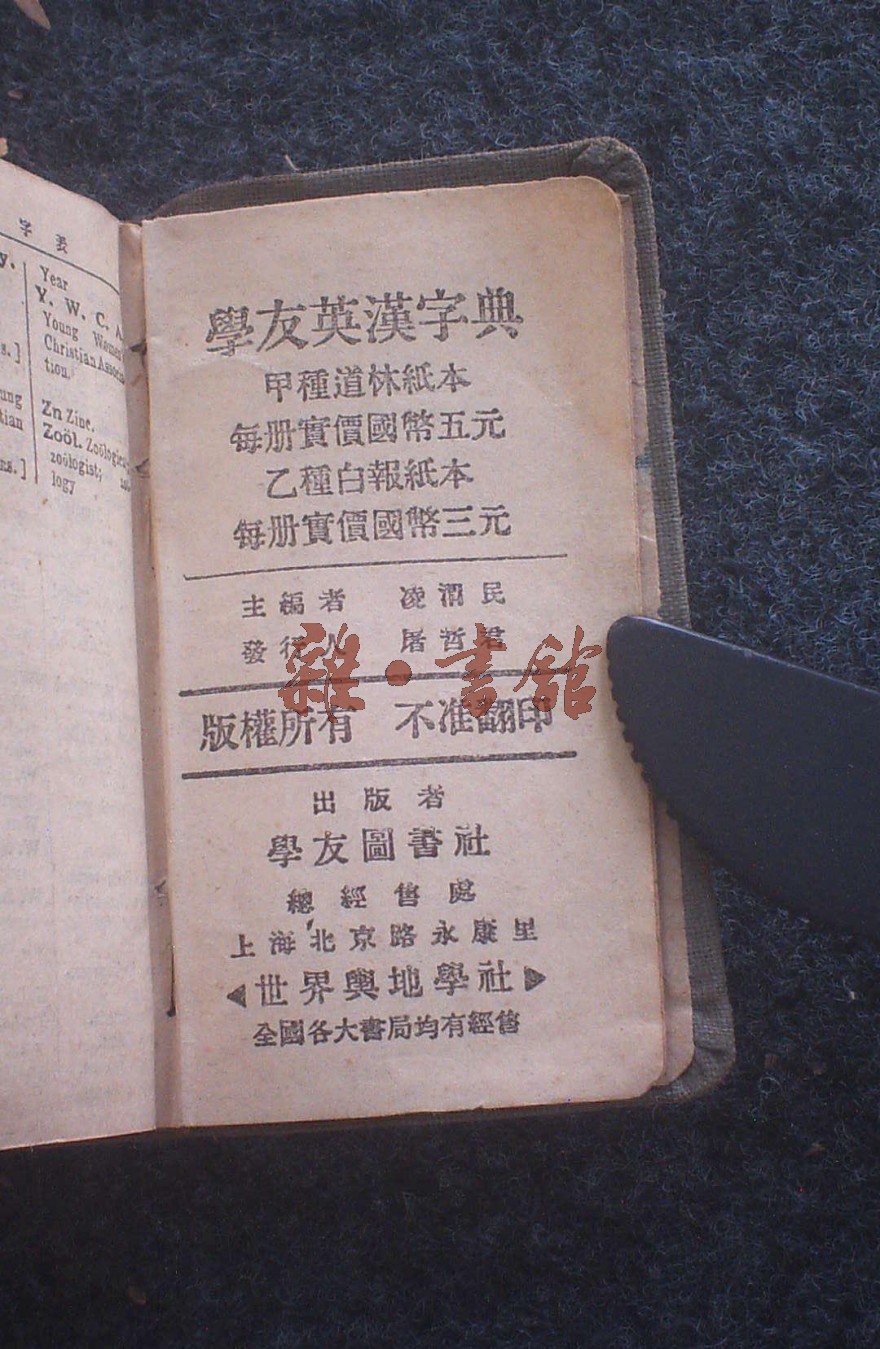 字表
y.
s.]
ung
tian
ns.]
Year
Y. W. C. A.
Young Women
Christian Associa
tion.
Zn Zinc.
Zoöl. Zoölogica
zoölogist;
logy
學友英漢字典
甲種道林紙本
每册實價國幣五元
乙種白報紙本
每册實價國幣三元
主編者 凌渭民
發行人 屠哲君
雜·書館
版權所有 不准翻印
出版者
學友圖書社
總經售處
上海北京路永康里
世界輿地學社
全國各大書局均有經售